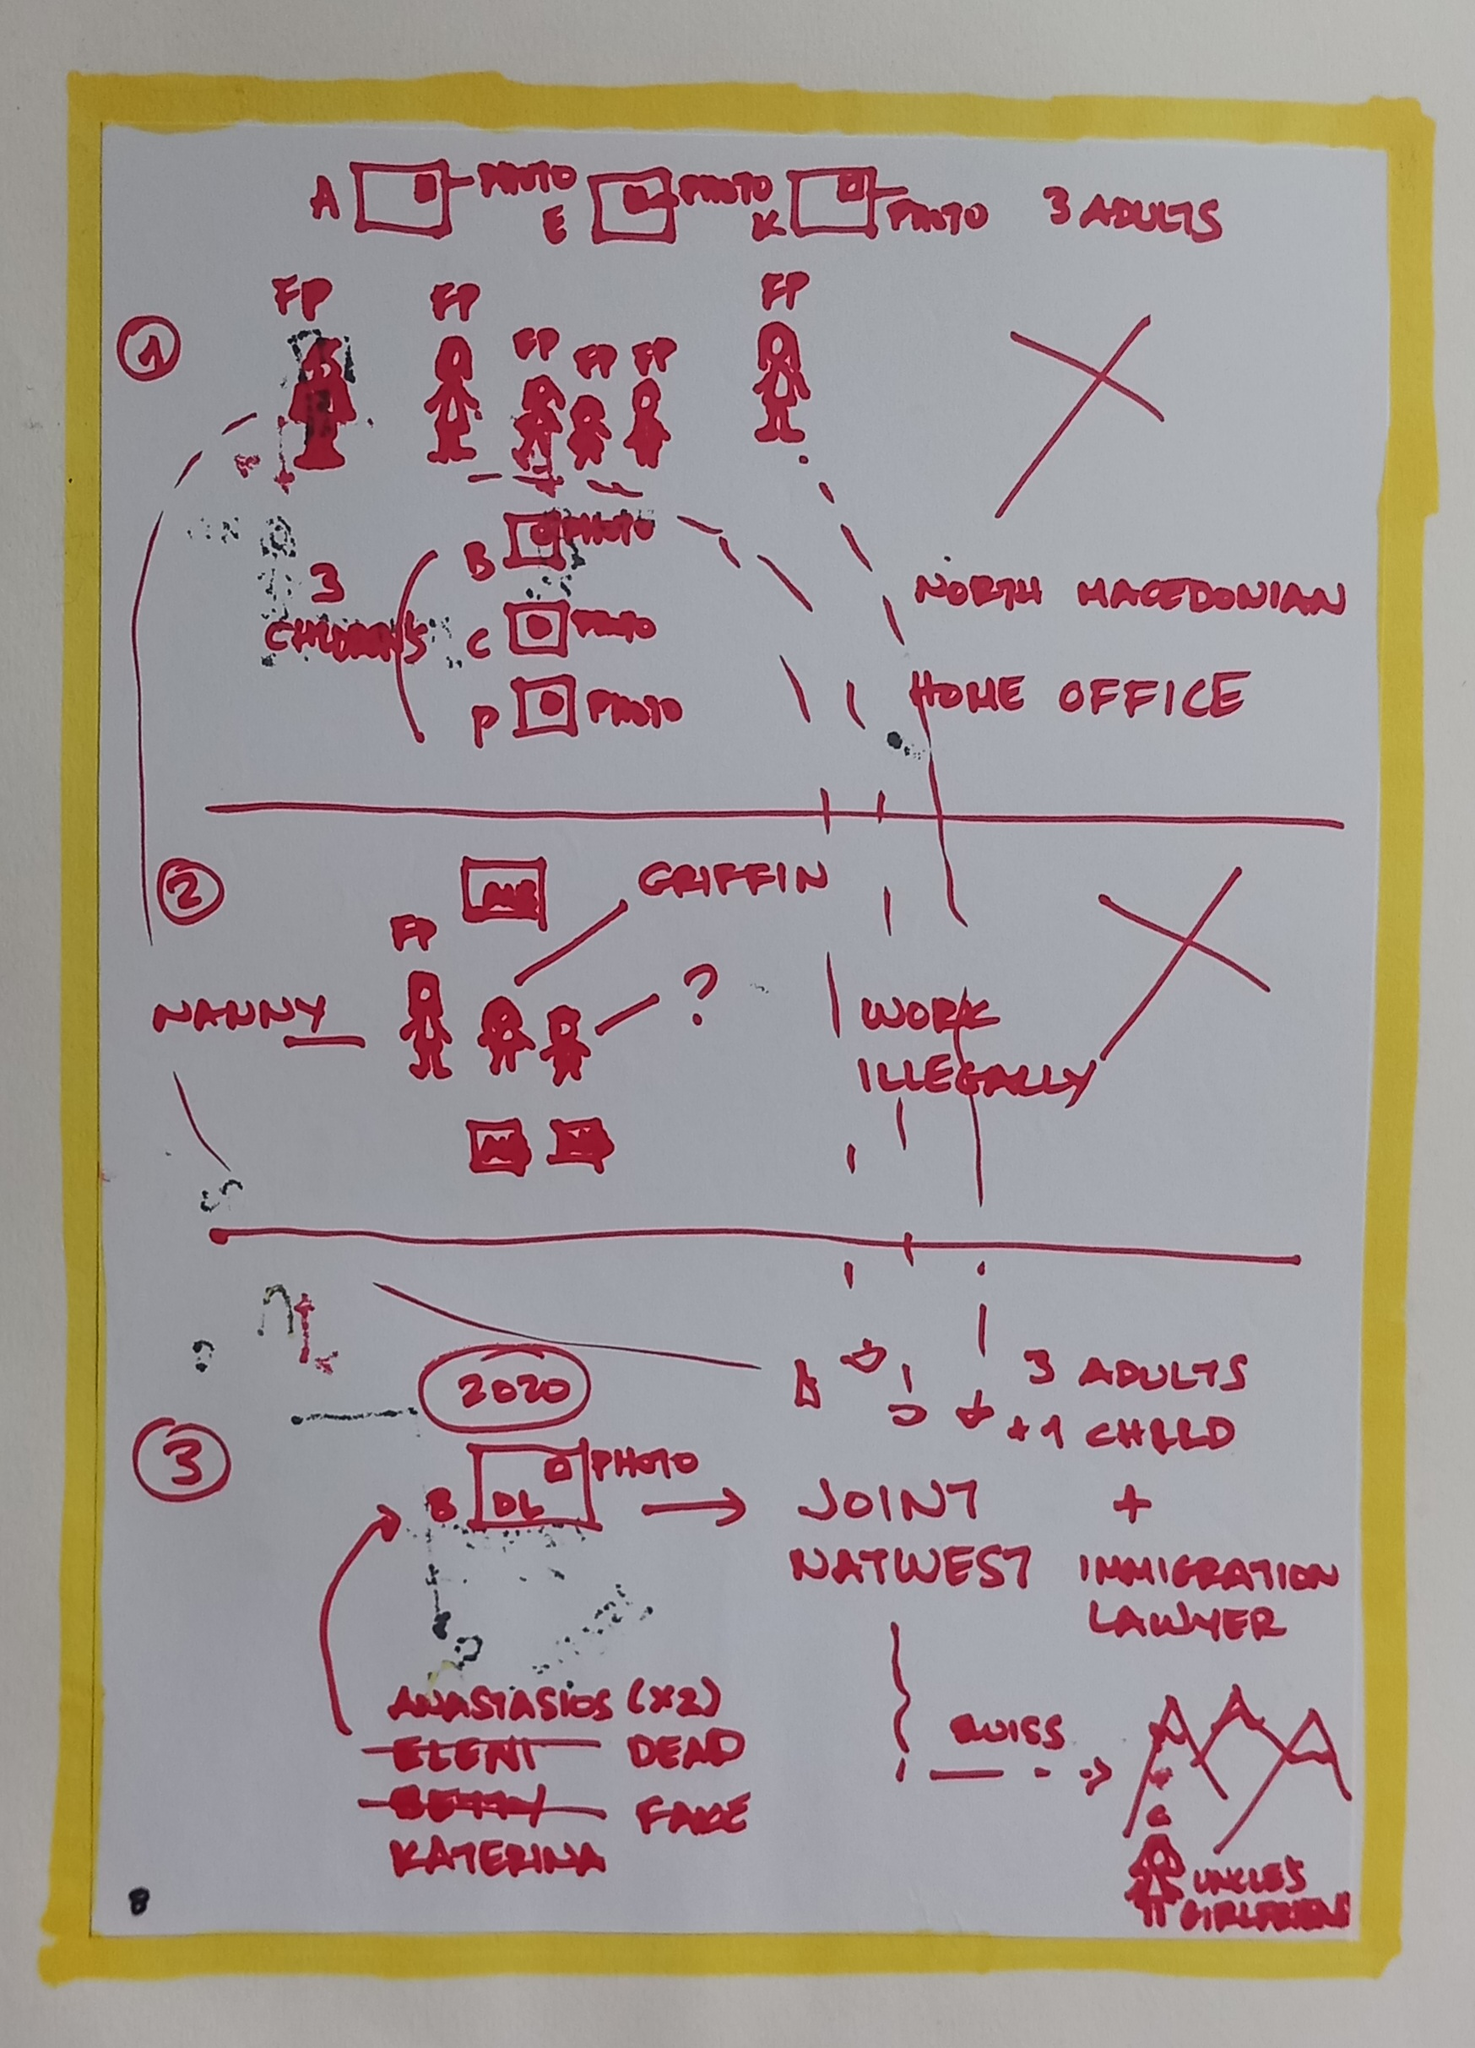 A PHOTO E PHOTO K PHOTO 3 ADULTS
FP FP FP
1
FP FP FP
B PHOTO
3
C PHOTO
P PHOTO
NORTH MACEDONIAN
HOME OFFICE
2
GRIFFIN
FP
NANNY
?
WORK
ILLEGALLY
2020
3 ADULTS
+1 CHILD
3
B DL PHOTO
JOINT +
NATWEST IMMIGRATION
LAWYER
ANASTASIOS (X2)
ELENI DEAD
BETTY FAKE
KATERINA
SWISS
UNCLE'S
8